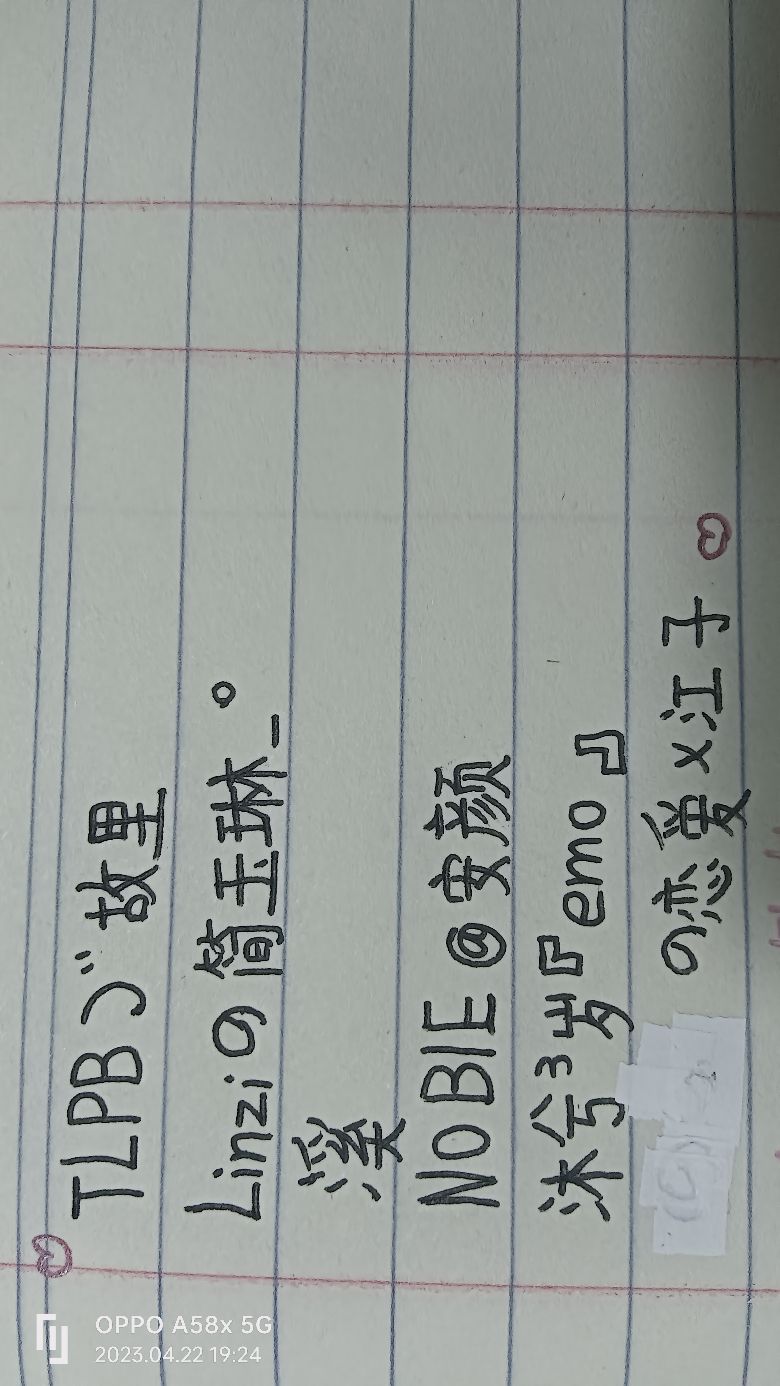 TLPBづ故里
Linziの简玉琳_°
溪
NOBIE@安颜
沐兮³岁『emo』
の恋爱x江子
OPPO A58x 5G
2023.04.22 19:24